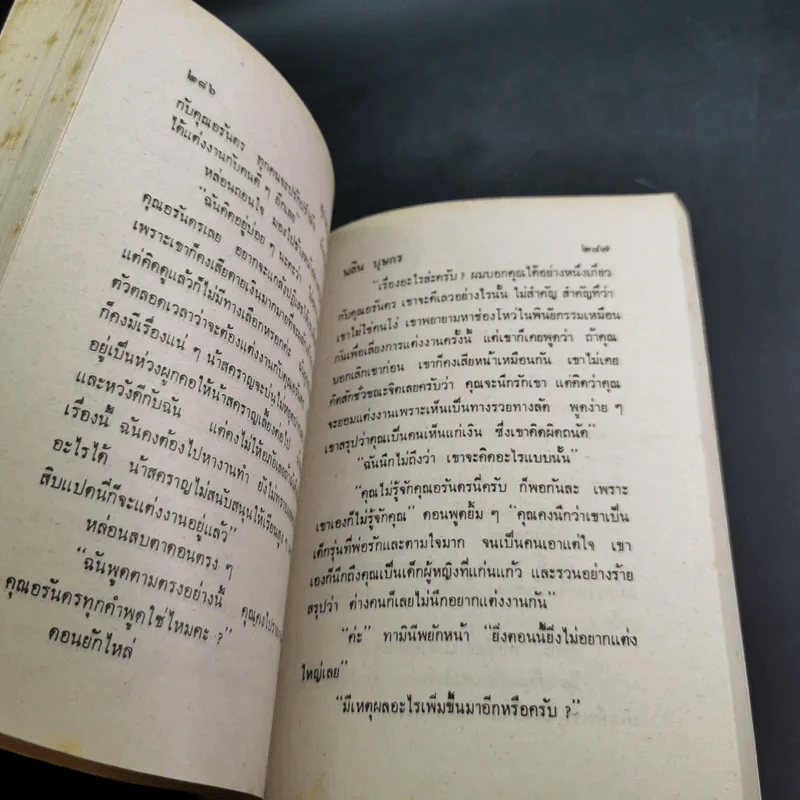 ๒๘๖
กับคุณอรันดร ทุกคนจะ
ได้แต่งงานกับคนดี ๆ อีกเลย"
หล่อนถอนใจ มองไป
"ฉันคิดอยู่บ่อย ๆ นะคะว่า
คุณอรันดรเลย อยากจะแกล้งปฏิเสธ
เพราะเขาก็คงเสียดายเงินมากมายที่จะ
แต่คิดดูแล้วก็ไม่มีทางเลือกหรอกค่ะ
ตัวตลอดเวลาว่าจะต้องแต่งงานกับคุณอรันดร
ก็คงมีเรื่องแน่ ๆ น้าสคราญจะบ่นไม่หยุด
อยู่เป็นห่วงผูกคอให้น้าสคราญเลี้ยงต่อไป
และหวังดีกับฉัน แต่คงไม่ให้อภัยเลย
เรื่องนี้ ฉันคงต้องไปหางานทำ ยังไม่ทราบ
อะไรได้ น้าสคราญไม่สนับสนุนให้เรียนสูง ๆ
สิบแปดนี่ก็จะแต่งงานอยู่แล้ว"
หล่อนสบตาดอนตรง ๆ
"ฉันพูดตามตรงอย่างนี้ คุณคงไป
คุณอรันดรทุกคำพูดใช่ไหมคะ ?"
ดอนยักไหล่
นลิน บุษกร ๒๘๗
"เรื่องอะไรล่ะครับ ? ผมบอกคุณได้อย่างหนึ่งเกี่ยว
กับคุณอรันดร เขาจะดีเลวอย่างไรนั้น ไม่สำคัญ สำคัญที่ว่า
เขาไม่ใช่คนโง่ เขาพยายามหาช่องโหว่ในพินัยกรรมเหมือน
กันเพื่อเลี่ยงการแต่งงานครั้งนี้ แต่เขาก็เคยพูดว่า ถ้าคุณ
บอกเลิกเขาก่อน เขาก็คงเสียหน้าเหมือนกัน เขาไม่เคย
คิดสักชั่วขณะจิตเลยครับว่า คุณจะนึกรักเขา แต่คิดว่าคุณ
จะยอมแต่งงานเพราะเห็นเป็นทางรวยทางลัด พูดง่าย ๆ
เขาสรุปว่าคุณเป็นคนเห็นแก่เงิน ซึ่งเขาคิดผิดถนัด"
"ฉันนึกไม่ถึงว่า เขาจะคิดอะไรแบบนั้น"
"คุณไม่รู้จักคุณอรันดรนี่ครับ ก็พอกันละ เพราะ
เขาเองก็ไม่รู้จักคุณ" ดอนพูดยิ้ม ๆ "คุณคงนึกว่าเขาเป็น
เด็กรุ่นที่พ่อรักและตามใจมาก จนเป็นคนเอาแต่ใจ เขา
เองก็นึกถึงคุณเป็นเด็กผู้หญิงที่แก่นแก้ว และรวนอย่างร้าย
สรุปว่า ต่างคนก็เลยไม่นึกอยากแต่งงานกัน"
"ค่ะ" ทามินีพยักหน้า "ยิ่งตอนนี้ยิ่งไม่อยากแต่ง
ใหญ่เลย"
"มีเหตุผลอะไรเพิ่มขึ้นมาอีกหรือครับ ?"